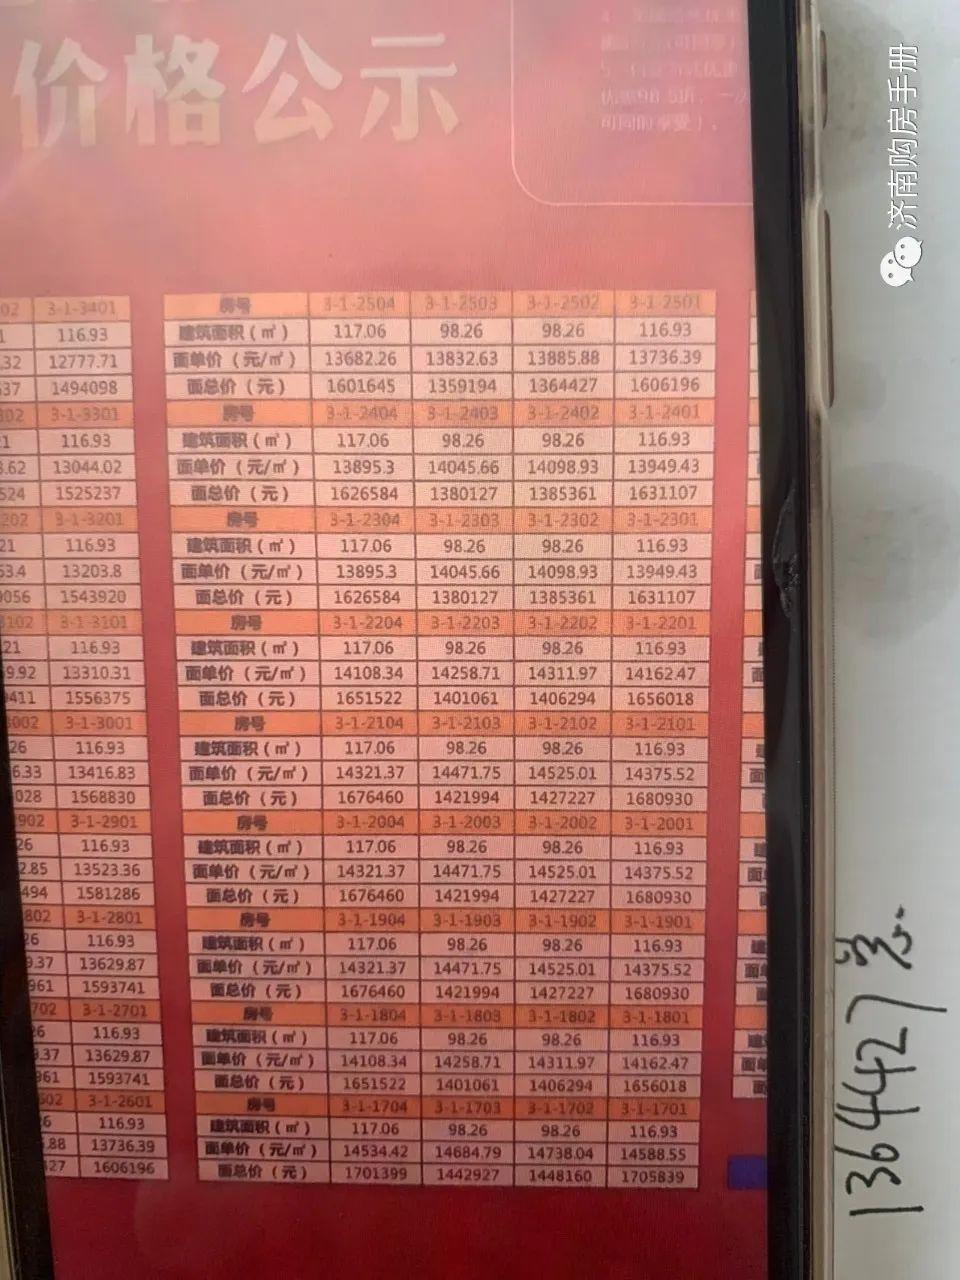 价格公示
优惠98.5折，一次
可同时享受）。
济南购房手册
02 3-1-3401
1 116.93
.32 12777.71
537 1494098
302 3-1-3301
1 116.93
3.62 13044.02
524 1525237
202 3-1-3201
21 116.93
53.4 13203.8
9056 1543920
3102 3-1-3101
.21 116.93
59.92 13310.31
9411 1556375
3002 3-1-3001
26 116.93
6.33 13416.83
028 1568830
2902 3-1-2901
26 116.93
2.85 13523.36
494 1581286
802 3-1-2801
26 116.93
9.37 13629.87
961 1593741
702 3-1-2701
26 116.93
9.37 13629.87
961 1593741
602 3-1-2601
6 116.93
.88 13736.39
427 1606196
房号 3-1-2504 3-1-2503 3-1-2502 3-1-2501
建筑面积（㎡） 117.06 98.26 98.26 116.93
面单价（元/㎡） 13682.26 13832.63 13885.88 13736.39
面总价（元） 1601645 1359194 1364427 1606196
房号 3-1-2404 3-1-2403 3-1-2402 3-1-2401
建筑面积（㎡） 117.06 98.26 98.26 116.93
面单价（元/㎡） 13895.3 14045.66 14098.93 13949.43
面总价（元） 1626584 1380127 1385361 1631107
房号 3-1-2304 3-1-2303 3-1-2302 3-1-2301
建筑面积（㎡） 117.06 98.26 98.26 116.93
面单价（元/㎡） 13895.3 14045.66 14098.93 13949.43
面总价（元） 1626584 1380127 1385361 1631107
房号 3-1-2204 3-1-2203 3-1-2202 3-1-2201
建筑面积（㎡） 117.06 98.26 98.26 116.93
面单价（元/㎡） 14108.34 14258.71 14311.97 14162.47
面总价（元） 1651522 1401061 1406294 1656018
房号 3-1-2104 3-1-2103 3-1-2102 3-1-2101
建筑面积（㎡） 117.06 98.26 98.26 116.93
面单价（元/㎡） 14321.37 14471.75 14525.01 14375.52
面总价（元） 1676460 1421994 1427227 1680930
房号 3-1-2004 3-1-2003 3-1-2002 3-1-2001
建筑面积（㎡） 117.06 98.26 98.26 116.93
面单价（元/㎡） 14321.37 14471.75 14525.01 14375.52
面总价（元） 1676460 1421994 1427227 1680930
房号 3-1-1904 3-1-1903 3-1-1902 3-1-1901
建筑面积（㎡） 117.06 98.26 98.26 116.93
面单价（元/㎡） 14321.37 14471.75 14525.01 14375.52
面总价（元） 1676460 1421994 1427227 1680930
房号 3-1-1804 3-1-1803 3-1-1802 3-1-1801
建筑面积（㎡） 117.06 98.26 98.26 116.93
面单价（元/㎡） 14108.34 14258.71 14311.97 14162.47
面总价（元） 1651522 1401061 1406294 1656018
房号 3-1-1704 3-1-1703 3-1-1702 3-1-1701
建筑面积（㎡） 117.06 98.26 98.26 116.93
面单价（元/㎡） 14534.42 14684.79 14738.04 14588.55
面总价（元） 1701399 1442927 1448160 1705839
1364427